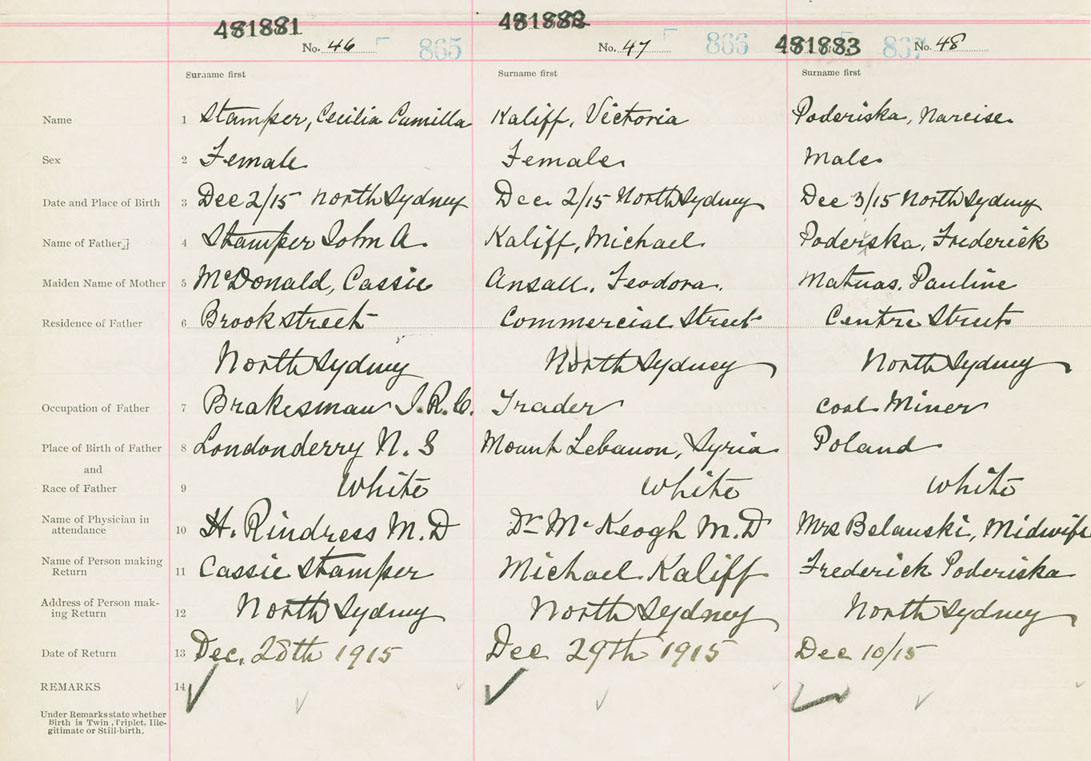 481881 481882
No. 46 865 No. 47 866 481883 867 No. 48
Surname first Surname first Surname first
Name 1 Stamper, Cecilia Camilla Kaliff, Victoria Poderiska, Narcise
Sex 2 Female Female Male
Date and Place of Birth 3 Dec 2/15 North Sydney Dec 2/15 North Sydney Dec 3/15 North Sydney
Name of Father 4 Stamper John A. Kaliff, Michael Poderiska, Frederick
Maiden Name of Mother 5 McDonald, Cassie Ansall, Feodora. Matuas, Pauline
Residence of Father 6 Brook street Commercial Street Centre Street
North Sydney North Sydney North Sydney
Occupation of Father 7 Brakesman I.R.C. Trader Coal Miner
Place of Birth of Father 8 Londonderry N. S Mount Lebanon, Syria Poland
and
Race of Father 9 White White White
Name of Physician in
attendance 10 H. Rindress M.D Dr McKeogh M.D Mrs Belanski, Midwife
Name of Person making
Return 11 Cassie Stamper Michael Kaliff Frederick Poderiska
Address of Person mak-
ing Return 12 North Sydney North Sydney North Sydney
Date of Return 13 Dec. 28th 1915 Dec 29th 1915 Dec 10/15
REMARKS 14
Under Remarks state whether
Birth is Twin, Triplet, Ille-
gitimate or Still-birth.